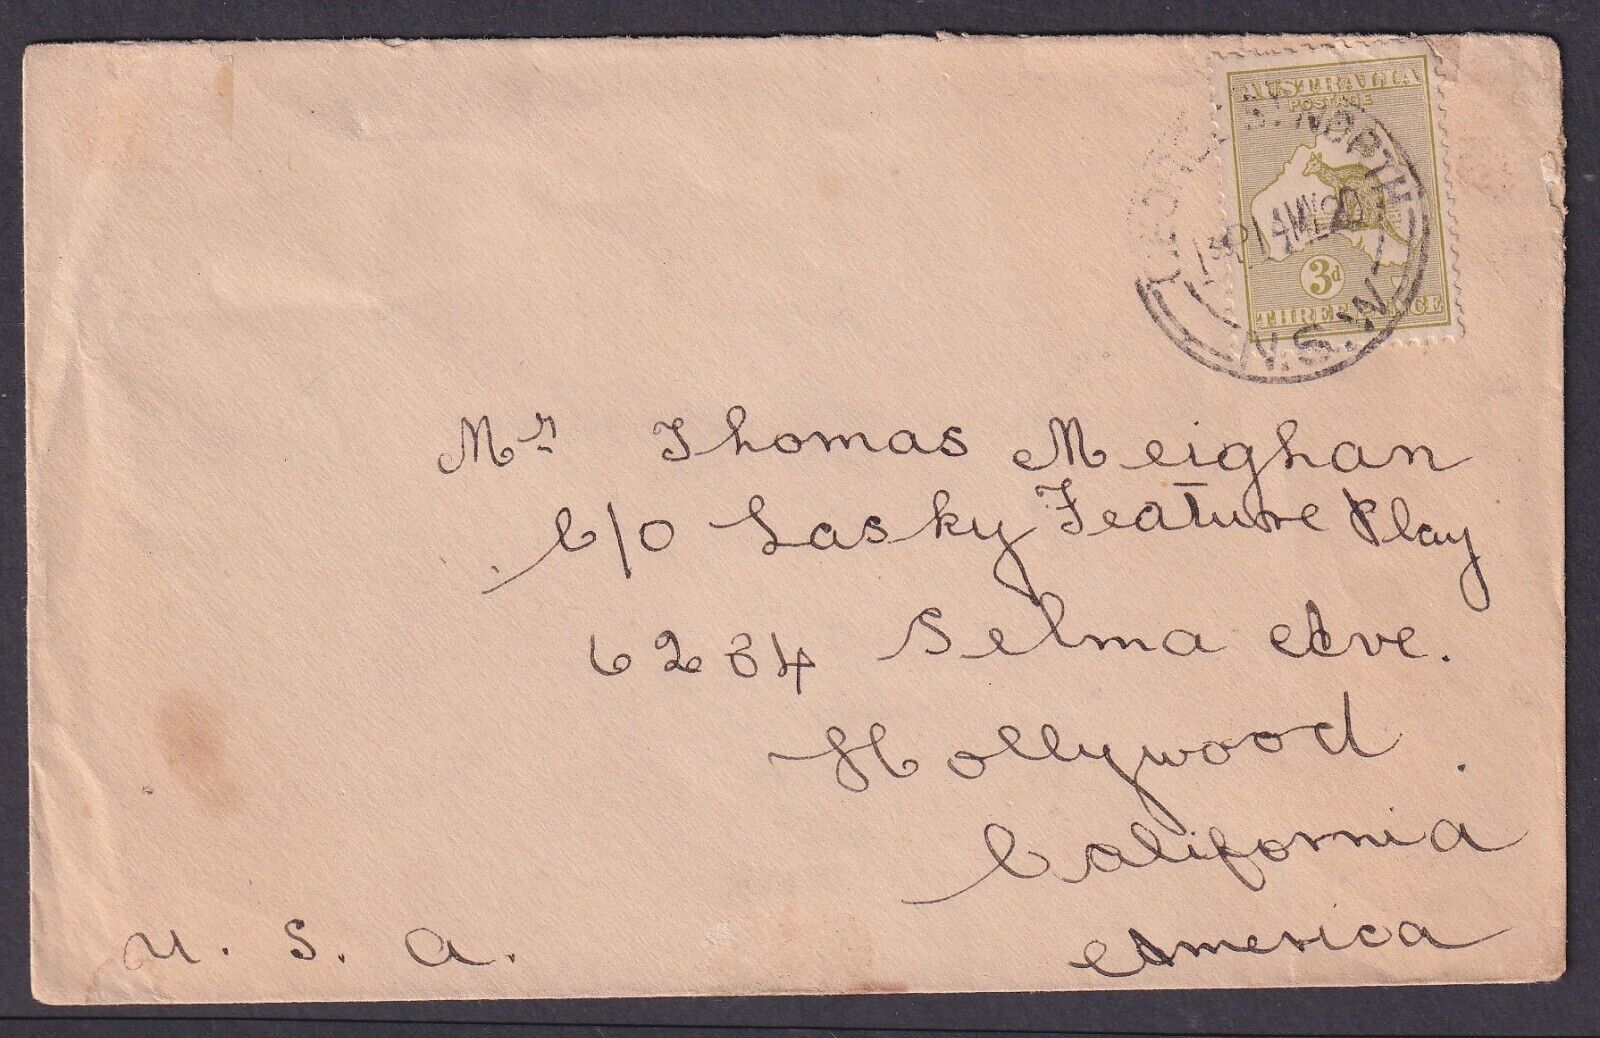 AUSTRALIA
POSTAGE
3d
THREE PENCE
ST NORTH
N.S.W
Mr Thomas Meighan
C/O Lasky Feature Play
6284 Selma Ave.
Hollywood
California
America
U. S. A.